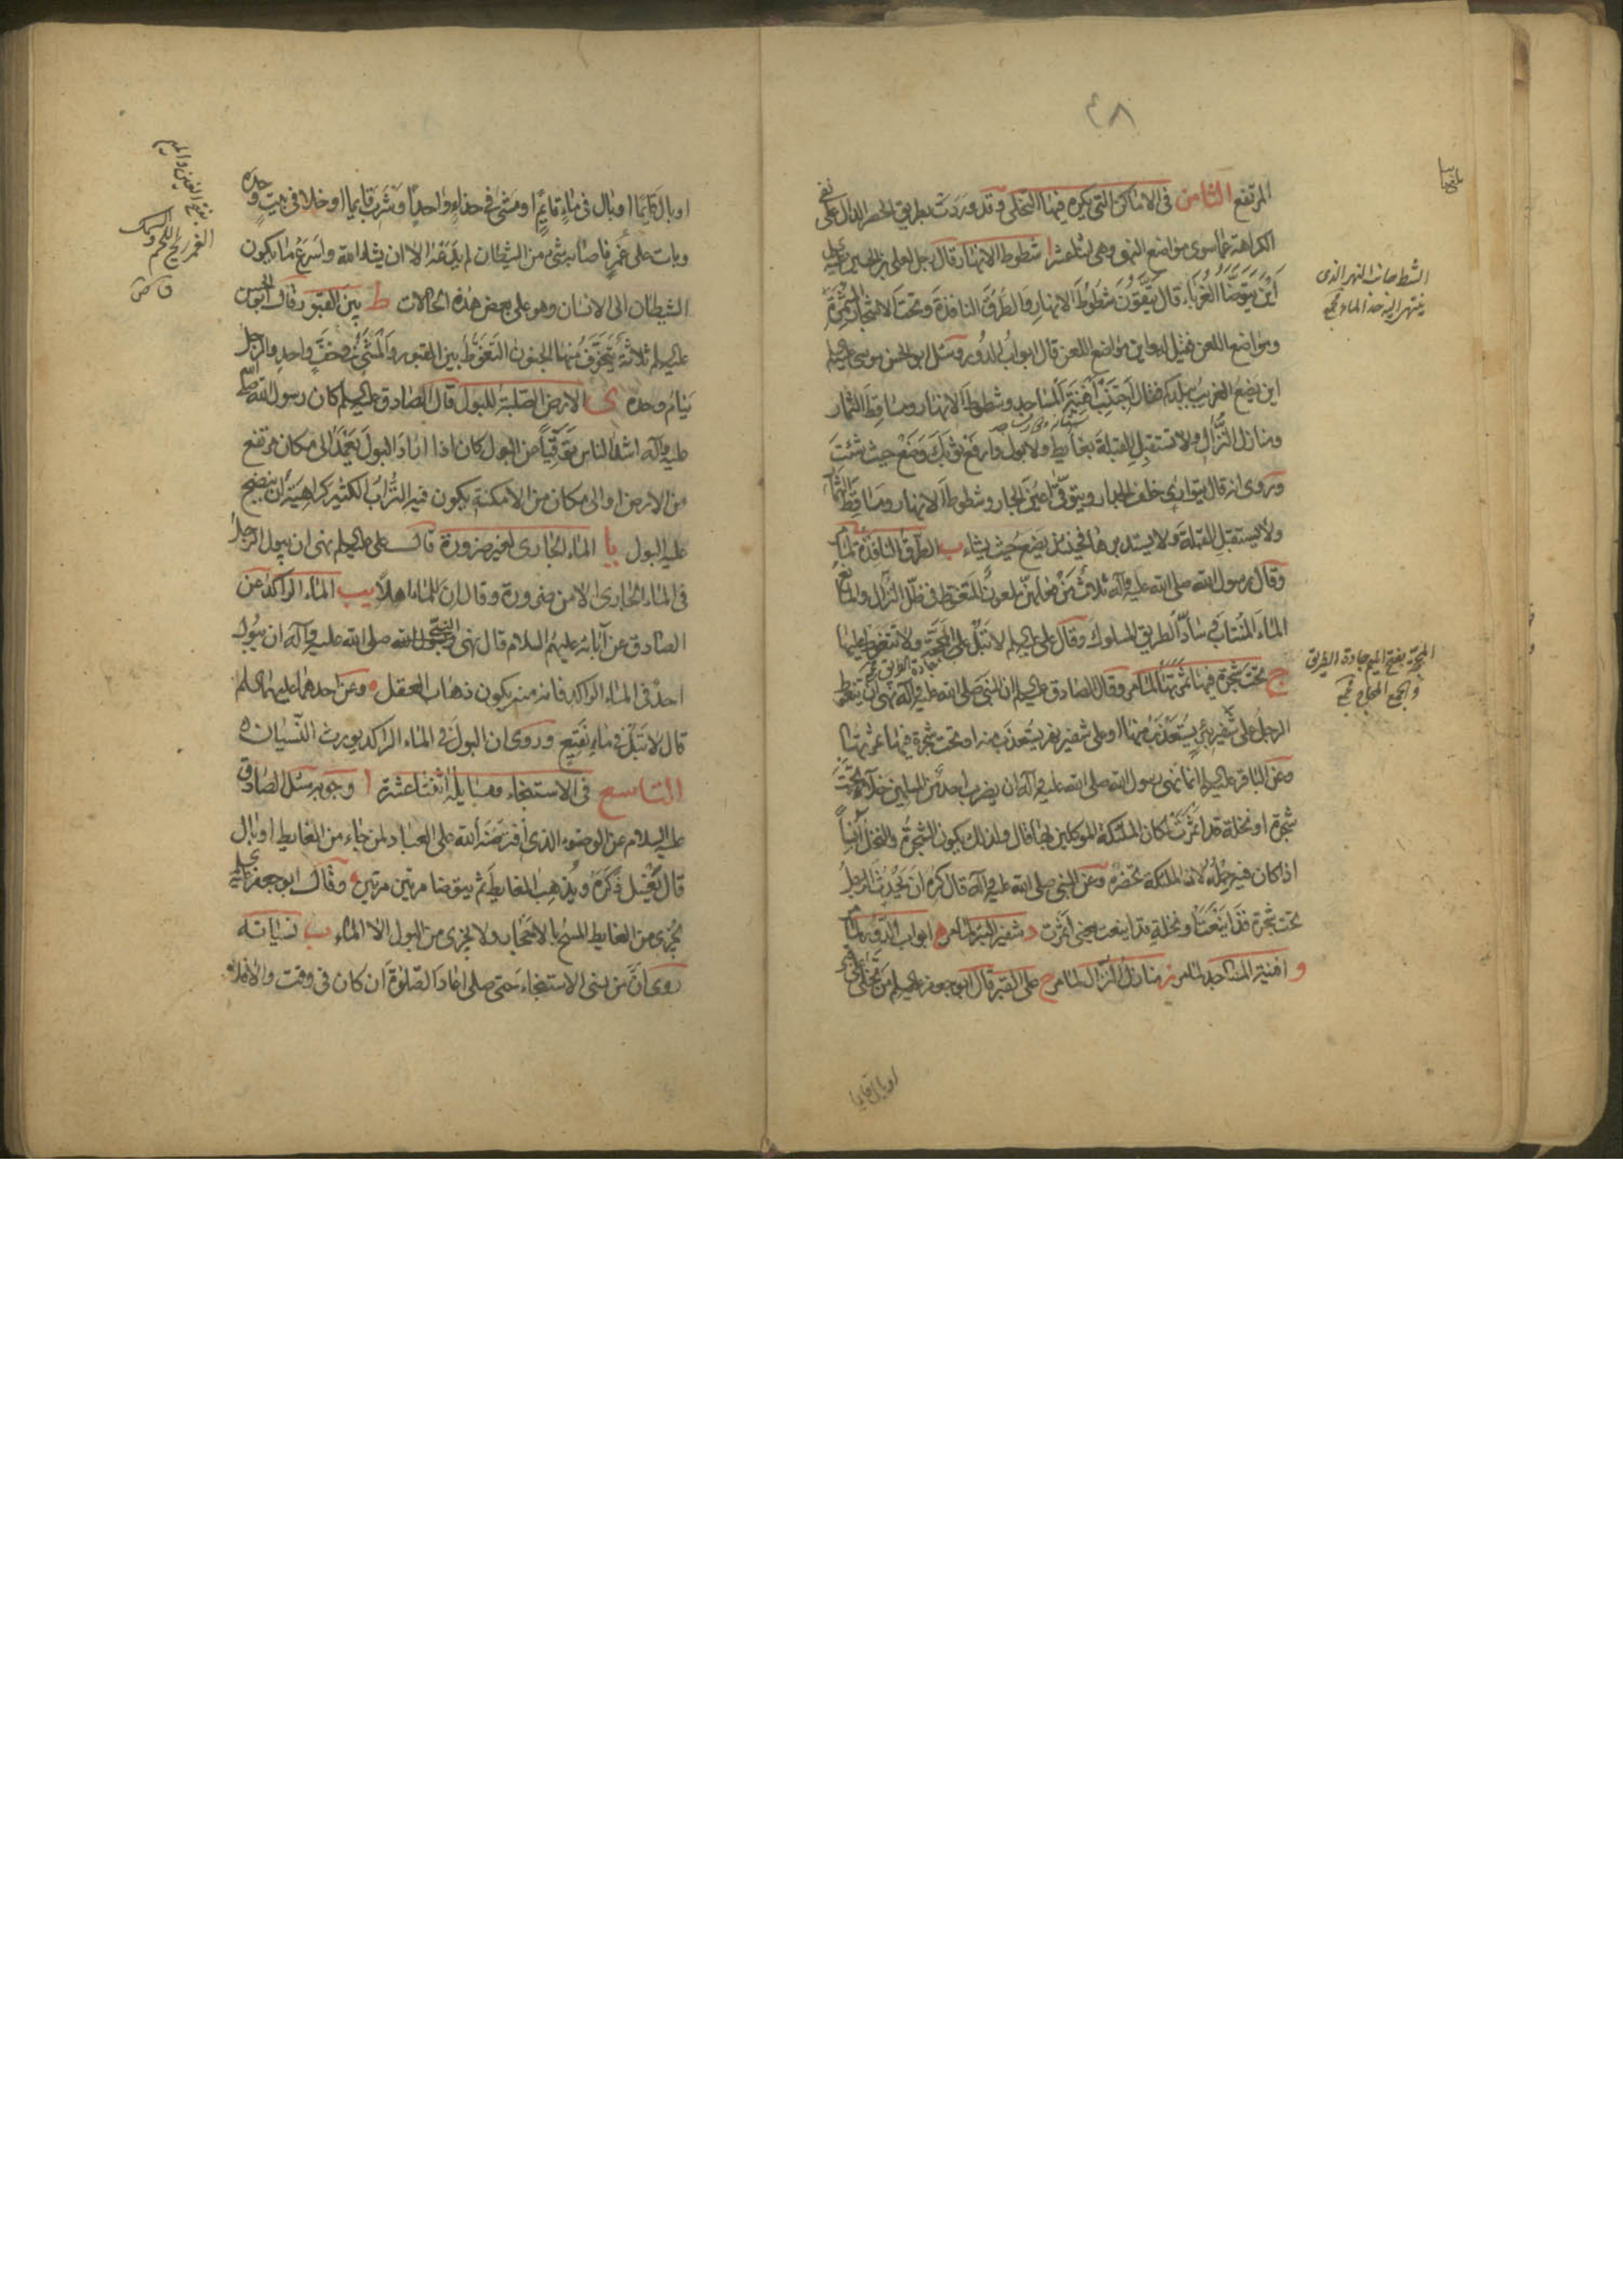 ٤٨
المرتفع الثامن فى الاماكن التى يكره فيها التخلى وقد وردت بطريق الحصر الدال على نفى
الكراهة عما سوى مواضع النهى وهى اثنا عشر ا شطوط الانهار قال رجل لعلى بن الحسين عليه
اين يتوضأ الغرباء قال يتقون شطوط الانهار والطرق النافذة وتحت الاشجار المثمرة
ومواضع اللعن فقيل له واين مواضع اللعن قال ابواب الدور وسئل ابو الحسن موسى عليه السلم
اين يضع الغريب ببلدكم فقال اجتنب افنية المساجد وشطوط الانهار ومساقط الثمار
ومنازل النزال ولا تستقبل القبلة بغايط ولا بول وارفع ثوبك وضع حيث شئت
وروى انه قال يتوارى خلف الجدار ويتوقى اعين الجار وشطوط الانهار ومساقط الثمار
ولا يستقبل القبلة ولا يستدبرها فحينئذ يضع حيث يشاء ب الطرق النافذة لما مر
وقال رسول الله صلى الله عليه وآله ثلاث من فعلهن ملعون المتغوط فى ظل النزال والمانع
الماء المنتاب وساد الطريق المسلوك وقال على عليه السلم لا تبل على المحجة ولا تتغوط عليها
ج تحت شجرة فيها ثمرتها لما مر وقال الصادق عليه السلم ان النبى صلى الله عليه وآله نهى ان يتغوط
الرجل على شفير بئر يستعذب منها او على شفير نهر يستعذب منه او تحت شجرة فيها ثمرتها
وعن الباقر عليه السلم انما نهى رسول الله صلى الله عليه وآله ان يضرب احد من المسلمين خلاء تحت
شجرة او نخلة قد اثمرت لمكان الملئكة الموكلين بها قال ولذلك يكون الشجرة والنخل انسا
اذا كان فيه حمله لان الملئكة تحضره وعن النبى صلى الله عليه وآله قال كره ان يحدث الرجل
تحت شجرة قد اينعت او نخلة قد اينعت يعنى اثمرت د شفير البئر لما مر ه ابواب الدور لما مر
و افنية المساجد لما مر ز منازل النزال لما مر ح على القبر قال ابو جعفر عليه السلم من تخلى على قبر
الشط جانب النهر الذى
ينتهى اليه حد الماء مجمع
المحجة بفتح الميم جادة الطريق
والجمع المحاج مجمع
جادة الطريق
او بال قايما
او بال قايما او بال فى ماء قايم او مشى فى حذاء واحد او شرب قايما او خلا فى بيت وحده
وبات على غمر فاصابه شىء من الشيطان لم يدعه الا ان يشاء الله واسرع ما يكون
الشيطان الى الانسان وهو على بعض هذه الحالات ط بين القبور قال ابو الحسن
عليه السلم ثلاثة يتخوف منها الجنون التغوط بين القبور والمشى فى خف واحد والرجل
ينام وحده ى الارض الصلبة للبول قال الصادق عليه السلم كان رسول الله صلى الله
عليه وآله اشد الناس توقيا من البول كان اذا اراد البول يعمد الى مكان مرتفع
من الارض او الى مكان من الامكنة يكون فيه التراب الكثير كراهية ان ينضح
عليه البول يا الماء الجارى لغير ضرورة قال على عليه السلم نهى ان يبول الرجل
فى الماء الجارى الا من ضرورة وقال ان للماء اهلا يب الماء الراكد عن
الصادق عن آبائه عليهم السلام قال نهى رسول الله صلى الله عليه وآله ان يبول
احد فى الماء الراكد فانه منه يكون ذهاب العقل وعن احدهما عليهما السلم
قال لا تبل فى ماء نقيع وروى ان البول فى الماء الراكد يورث النسيان
التاسع فى الاستنجاء ومسايله اثنتا عشرة ا وجوبه سئل الصادق
عليه السلام عن الوضوء الذى افترضه الله على العباد لمن جاء من الغايط او بال
قال يغسل ذكره ويذهب الغايط ثم يتوضا مرتين مرتين وقال ابو جعفر عليه
يجزى من الغايط المسح بالاحجار ولا يجزى من البول الا الماء ب نسيانه
روى ان من نسى الاستنجاء حتى صلى اعاد الصلوة ان كان فى وقت والا فلا
الغمر ريح اللحم